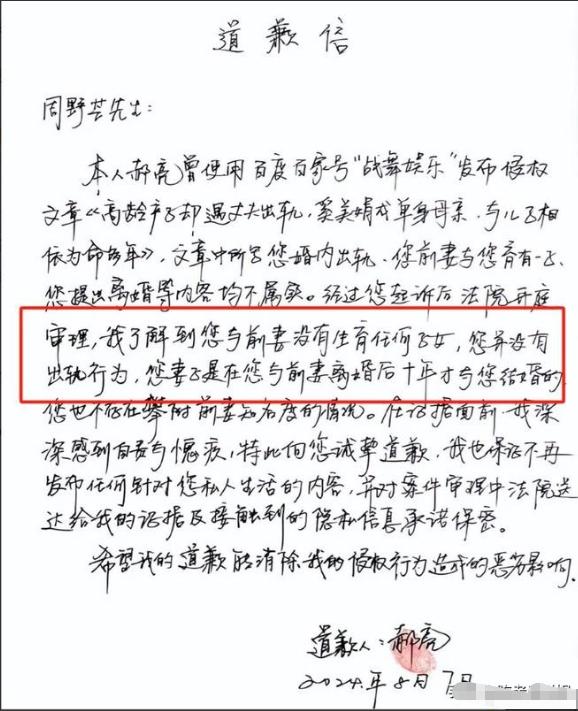 道歉信
周野芒先生：
本人郝亮曾使用百度百家号“战舞娱乐”发布侵权
文章《高龄产子却遇丈夫出轨，奚美娟成单身母亲，与儿子相
依为命多年》，文章中所写您婚内出轨、您前妻与您育有一子、
您提出离婚等内容均不属实。经过您起诉后法院开庭
审理，我了解到您与前妻没有生育任何子女，您并没有
出轨行为，您妻子是在您与前妻离婚后十年才与您结婚的，
您也不存在攀附前妻知名度的情况。在证据面前，我深
深感到自责与愧疚，特此向您诚挚道歉，我也保证不再
发布任何针对您私人生活的内容，并对案件审理中法院送
达给我的证据及接触到的隐私信息承诺保密。
希望我的道歉能消除我的侵权行为造成的恶劣影响。
道歉人：郝亮
2024.年8月7日